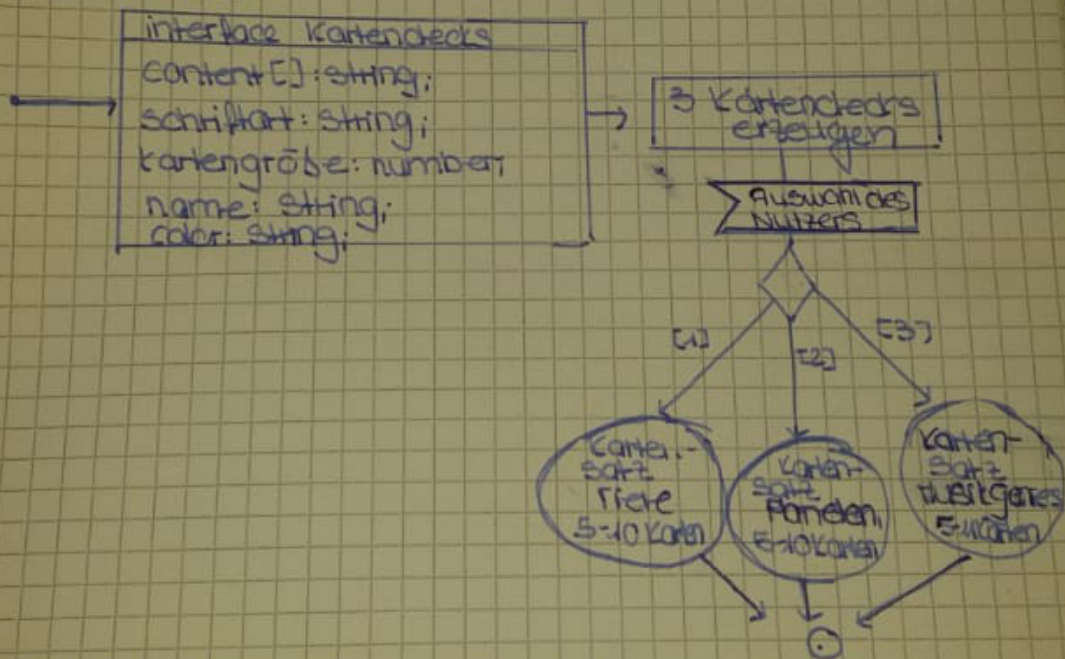 interface Kartendecks
content[]: string;
schriftart: string;
kartengröße: number;
name: string;
color: string;
3 Kartendecks
erzeugen
Auswahl des
Nutzers
[1]
[2]
[3]
Karten-
satz
Tiere
5-10 Karten
Karten-
satz
5-10 Karten
Karten-
satz
Karten